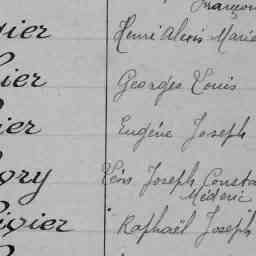 François
gier Henri Alexis Marie
ier Georges Louis
ier Eugène Joseph
ory Léon Joseph Consta
Médéric
vigier Raphaël Joseph